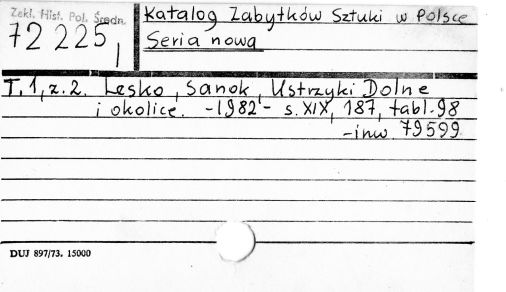 Zakł. Hist. Pol. Średn.
72 225 I
Katalog Zabytków Sztuki w Polsce
Seria nowa
T. 1, z. 2. Lesko, Sanok, Ustrzyki Dolne
i okolice. -1982- s. XIX, 187, tabl. 98
-inw. 79599
DUJ 897/73. 15000